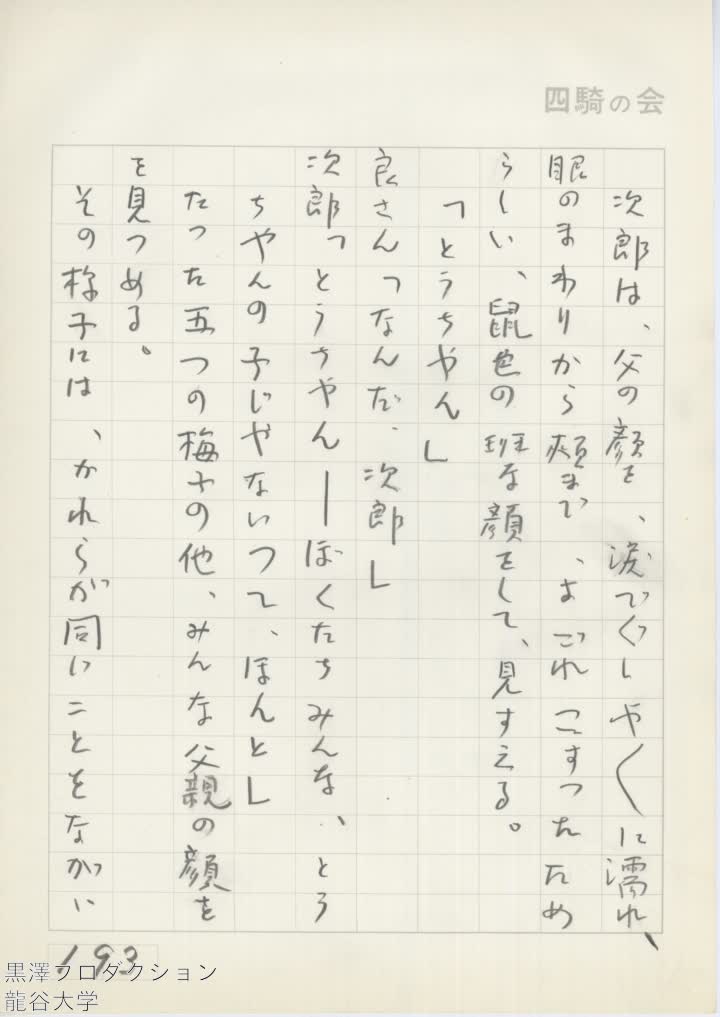 四騎の会
次郎は、父の顔を、涙でぐしゃ〱に濡れ、
眼のまわりから頬まで、よごれこすったため
らしい、鼠色の斑な顔をして、見すえる。
「とうちゃん」
良さん「なんだ、次郎」
次郎「とうちゃん―ぼくたちみんな、とう
ちゃんの子じゃないって、ほんと」
たった五つの梅ヤの他、みんな父親の顔を
を見つめる。
その様子には、かれらが同いことをながい
193
黒澤プロダクション
龍谷大学